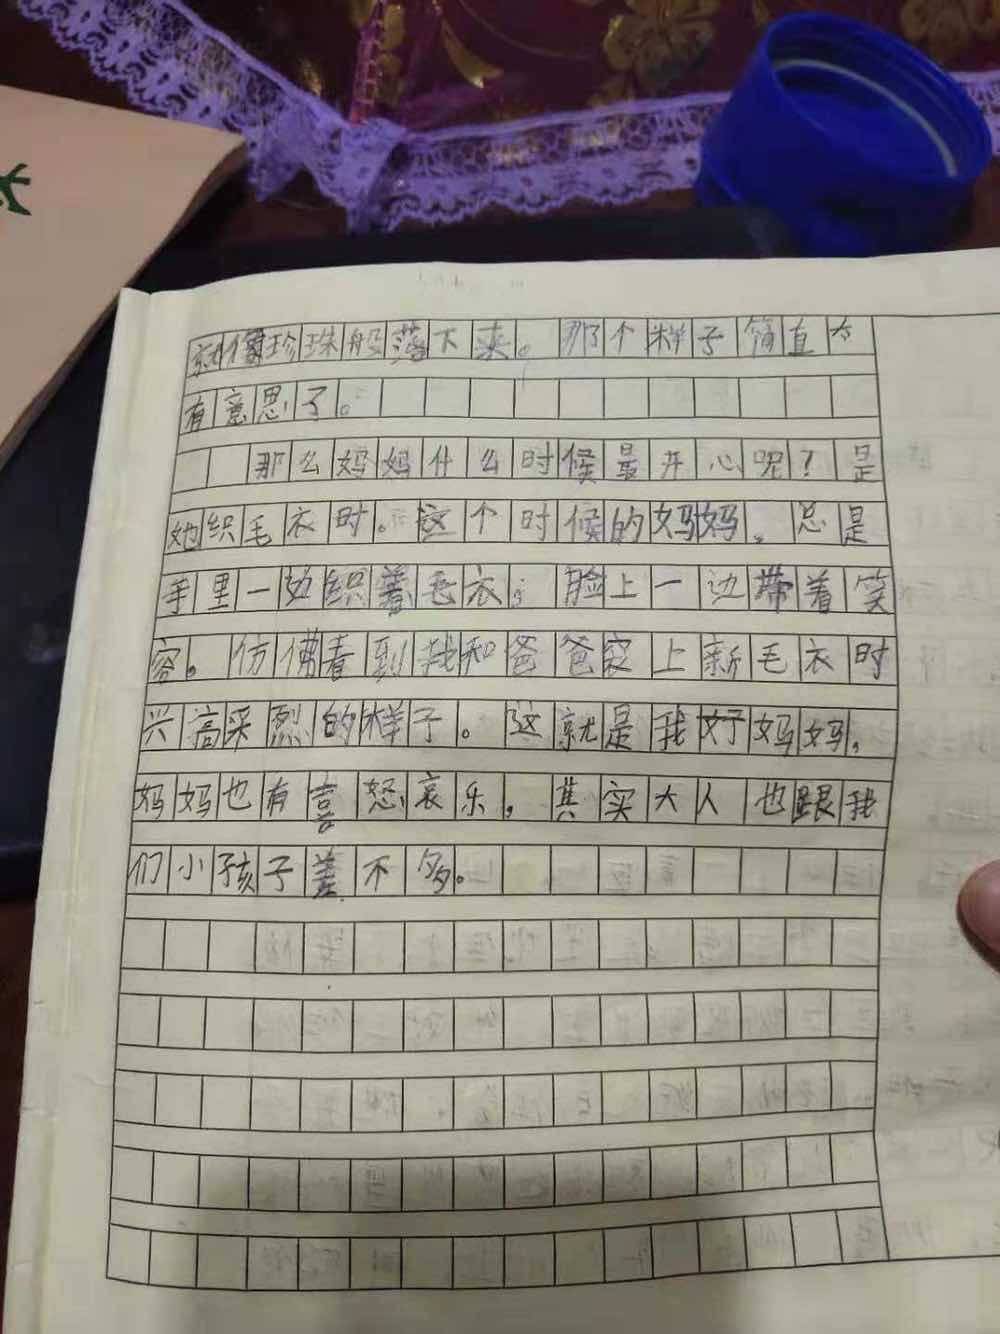 就像珍珠般落下来。那个样子简直太
有意思了。
那么妈妈什么时候最开心呢？是
她织毛衣时。这个时候的妈妈，总是
手里一边织着毛衣；脸上一边带着笑
容。仿佛看到我和爸爸穿上新毛衣时
兴高采烈的样子。这就是我好妈妈，
妈妈也有喜怒哀乐，其实大人也跟我
们小孩子差不多。